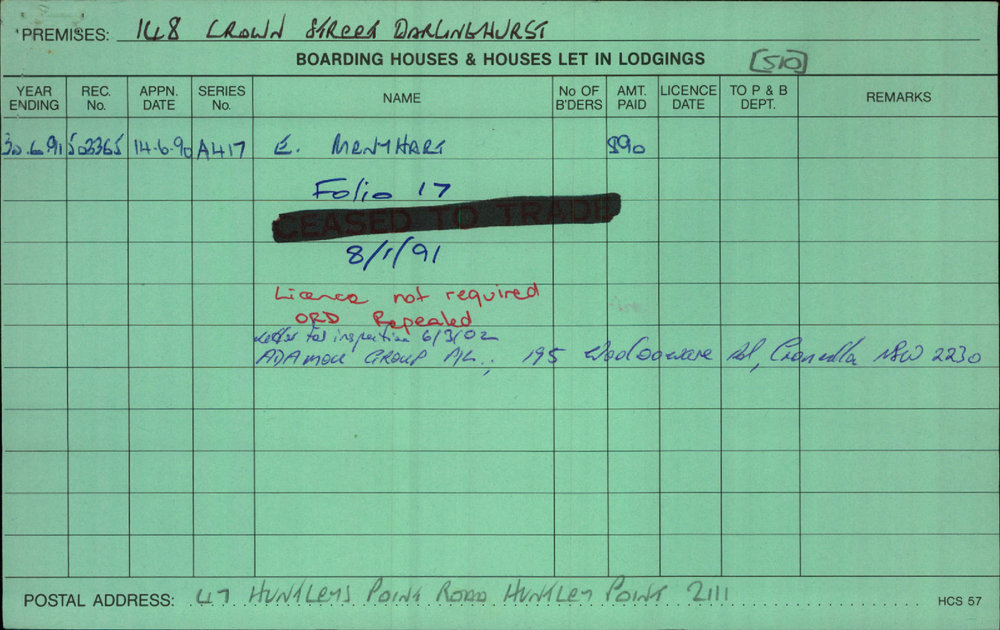 PREMISES: 148 CROWN STREET DARLINGHURST
BOARDING HOUSES & HOUSES LET IN LODGINGS [510]
YEAR ENDING REC. No. APPN. DATE SERIES No. NAME No OF B'DERS AMT. PAID LICENCE DATE TO P & B DEPT. REMARKS
30.6.91 502365 14.6.90 A417 E. MENYHART 890
Folio 17
CEASED TO TRADE
8/1/91
Licence not required
ORD Repealed
Letter for inspection 6/3/02
ADAMOU GROUP P/L, 195 Woolooware Rd, Cronulla NSW 2230
POSTAL ADDRESS: 47 HUNTLEYS POINT ROAD HUNTLEY POINT 2111
HCS 57